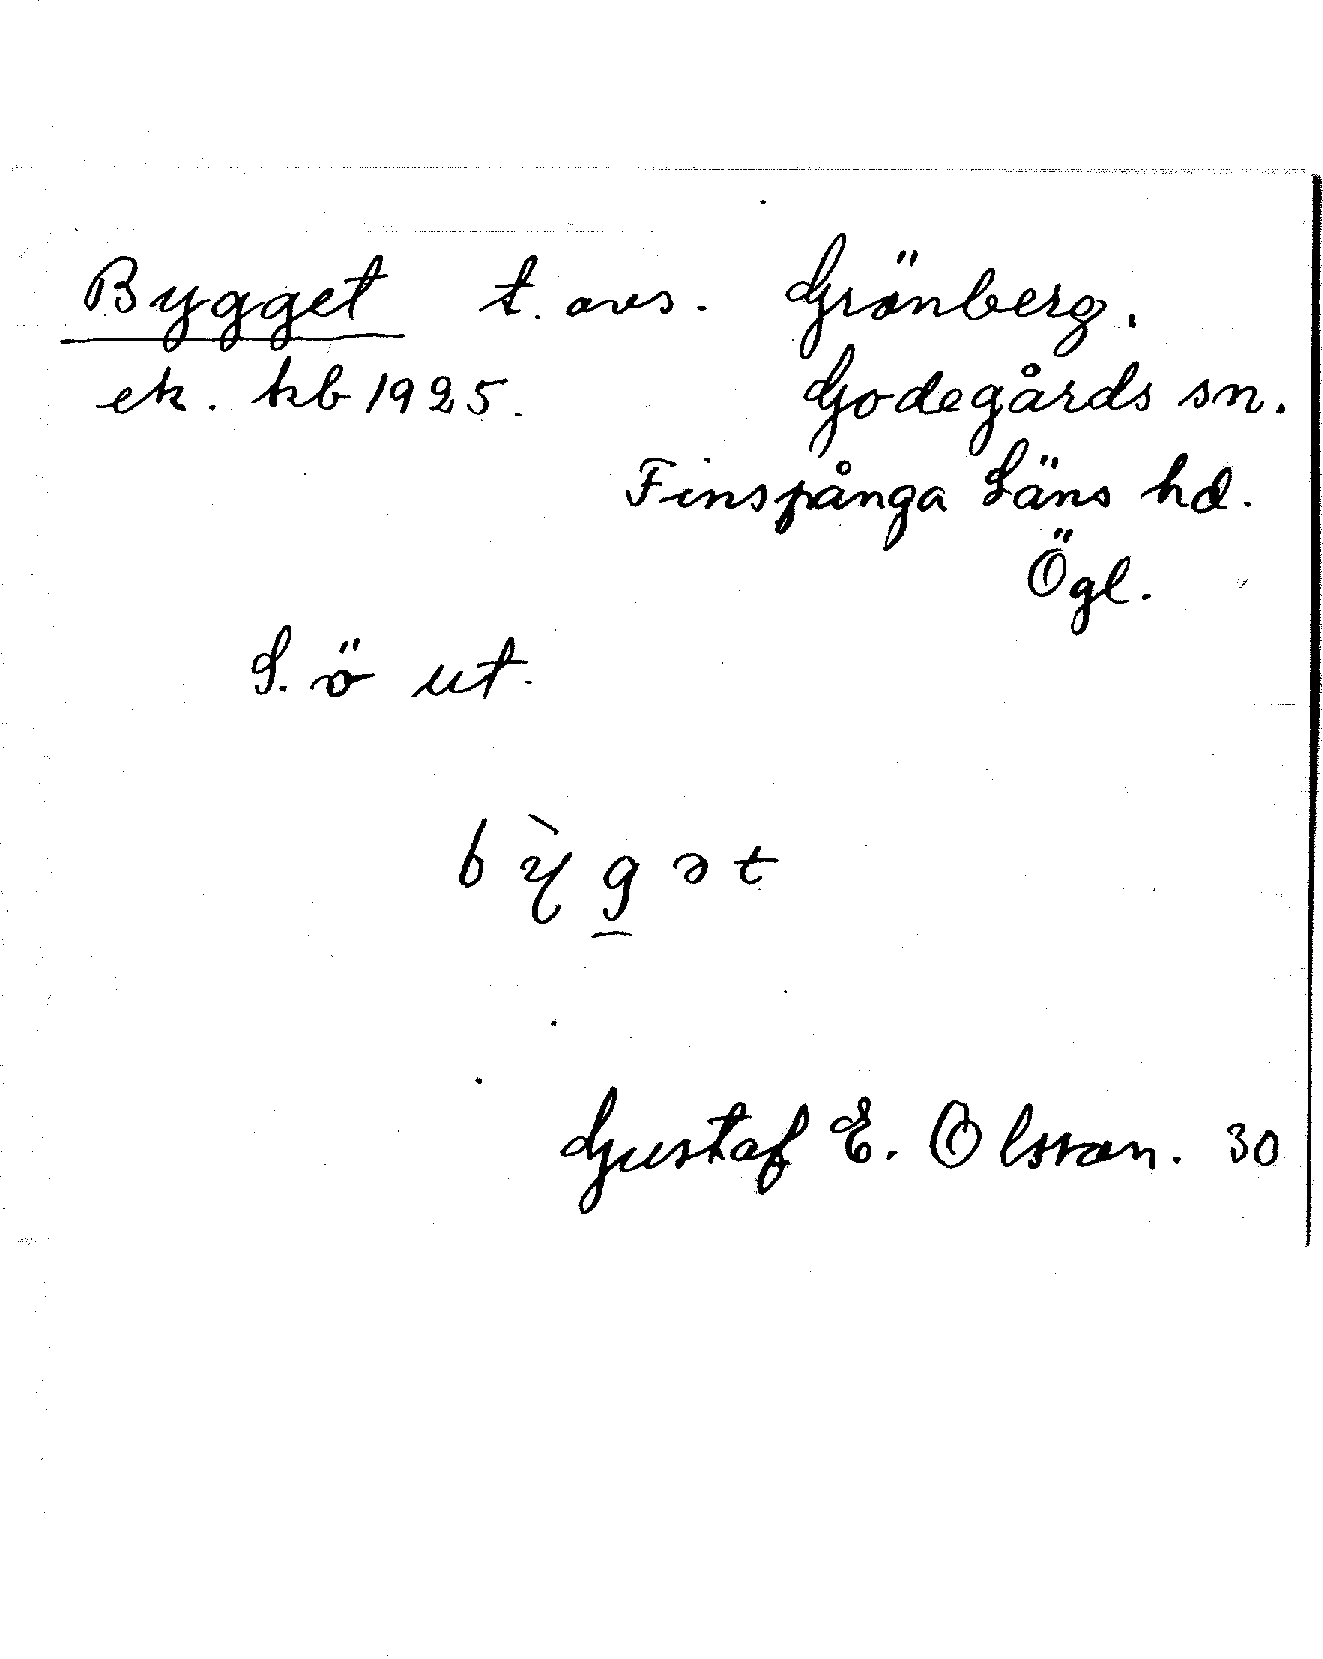 Bygget t. avs. Grönberg.
ek. kb 1925. Godegårds sn.
Finspånga Läns hd.
Ögl.
S. ö ut.
bỳg̱ət
Gustaf E. Olsson. 30